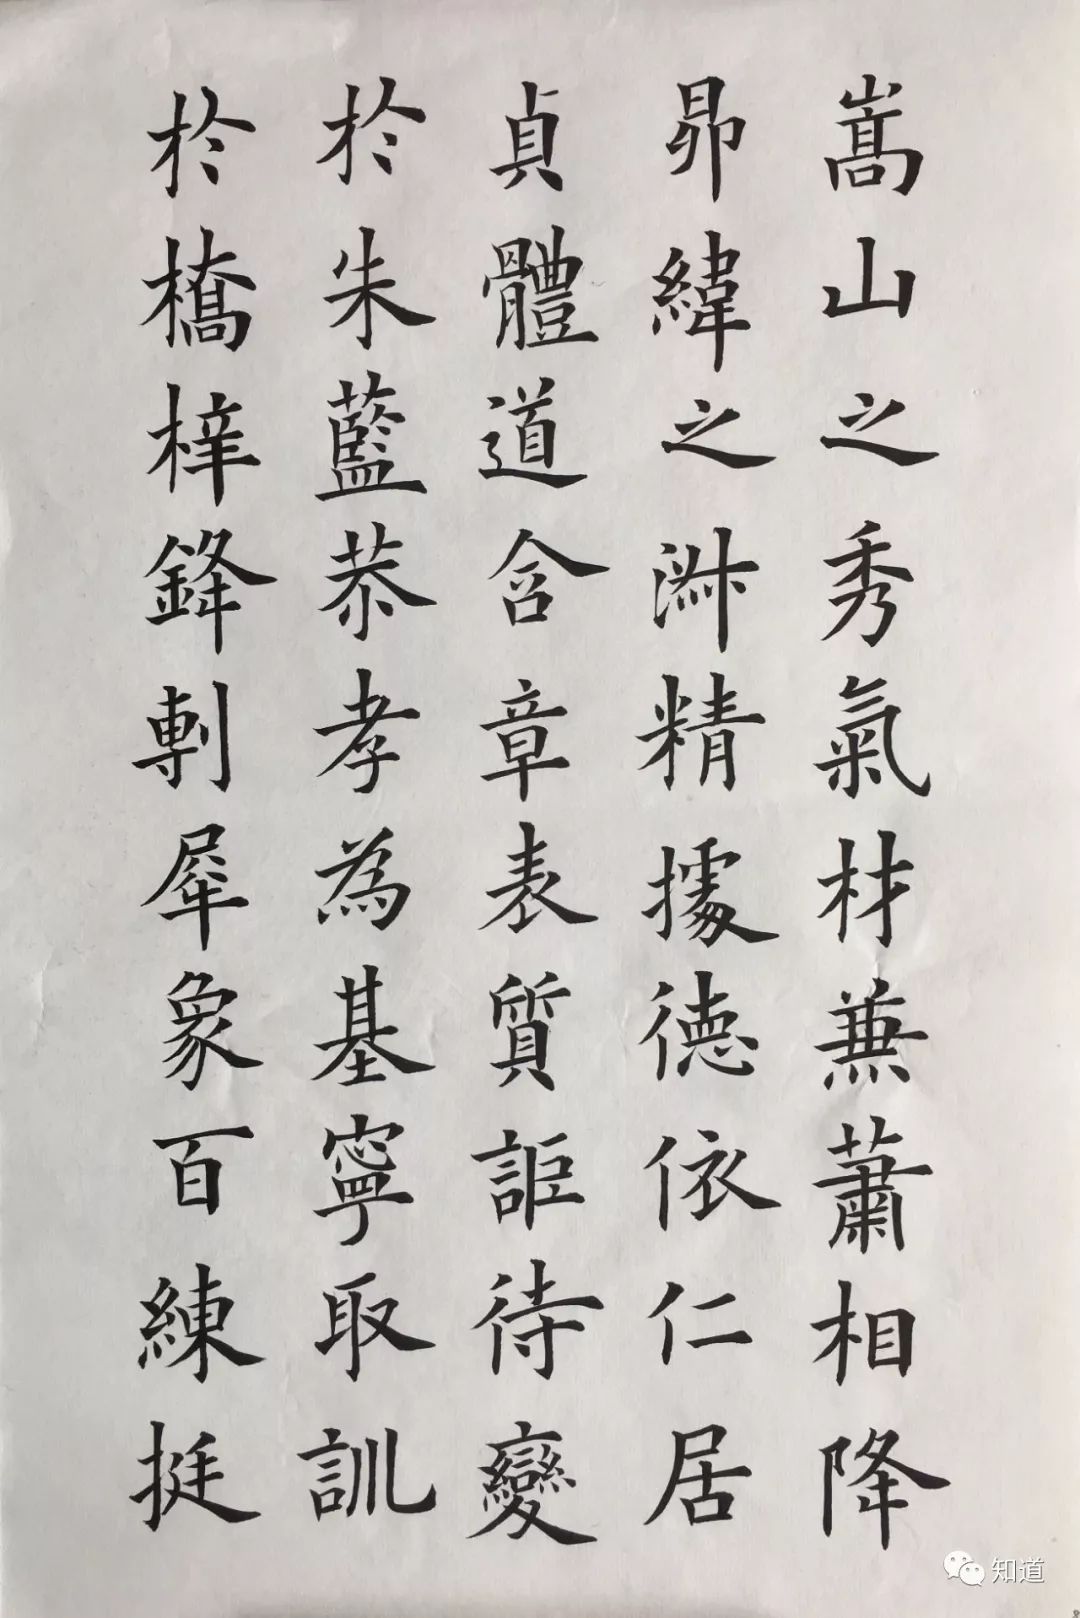 嵩山之秀氣材兼蕭相降
昴緯之淋精據德依仁居
貞體道含章表質詎待變
於朱藍恭孝為基寧取訓
於橋梓鋒剸犀象百練挺
知道